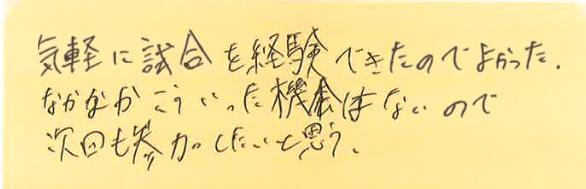 気軽に試合を経験できたのでよかった.
なかなかこういった機会はないので
次回も参加したいと思う.